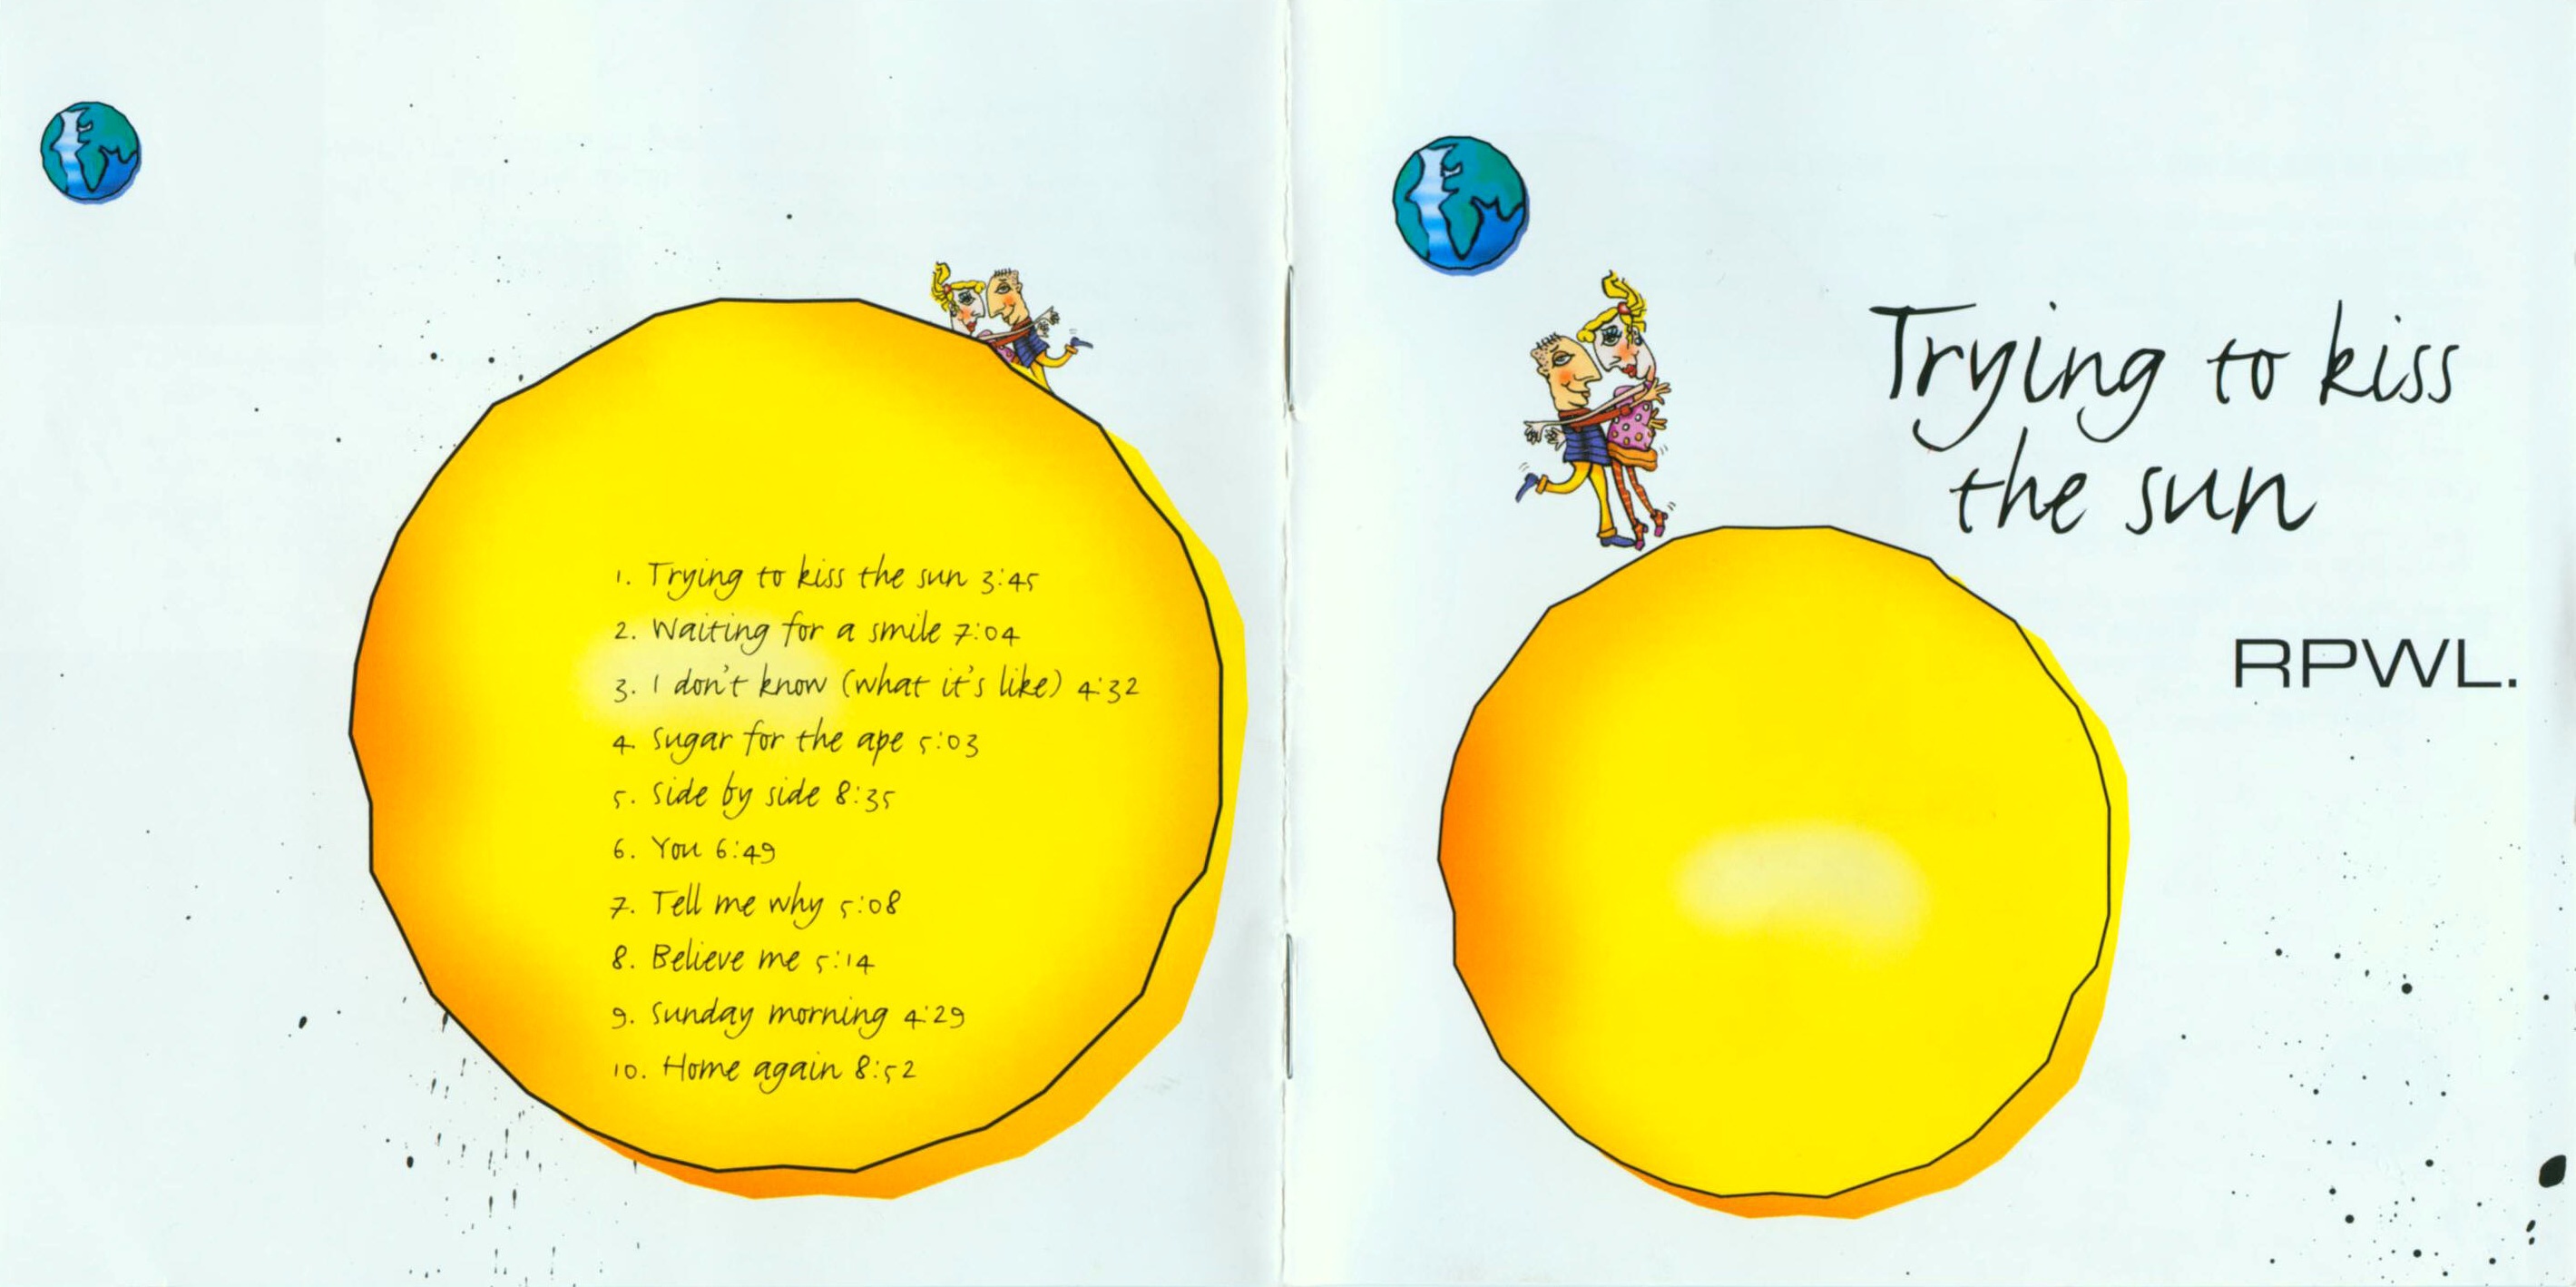 1. Trying to kiss the sun 3:45
2. Waiting for a smile 7:04
3. I don't know (what it's like) 4:32
4. Sugar for the ape 5:03
5. Side by side 8:35
6. You 6:49
7. Tell me why 5:08
8. Believe me 5:14
9. Sunday morning 4:29
10. Home again 8:52
Trying to kiss
the sun
RPWL.